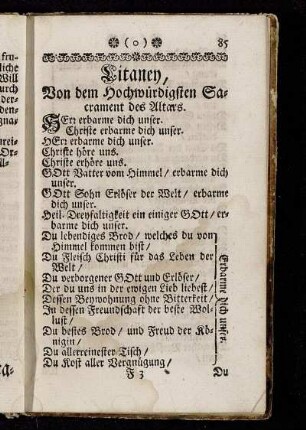 (o) 85
Litaney,
Von dem Hochwürdigsten Sa-
crament des Altars.
HErr erbarme dich unser.
Christe erbarme dich unser.
HErr erbarme dich unser.
Christe höre uns.
Christe erhöre uns.
GOtt Vatter vom Himmel / erbarme dich
unser.
GOtt Sohn Erlöser der Welt / erbarme
dich unser.
Heil. Dreyfaltigkeit ein einiger GOtt / er-
barme dich unser.
Du lebendiges Brod / welches du vom
Himmel kommen bist /
Du Fleisch Christi für das Leben der
Welt /
Du verborgener GOtt und Erlöser /
Der du uns in der ewigen Lieb liebest /
Dessen Beywohnung ohne Bitterkeit /
In dessen Freundschaft der beste Wol-
lust /
Du bestes Brod / und Freud der Kö-
nigin /
Du allerreinester Tisch /
Du Kost aller Vergnügung /
Erbarme dich unser.
F 3 Du